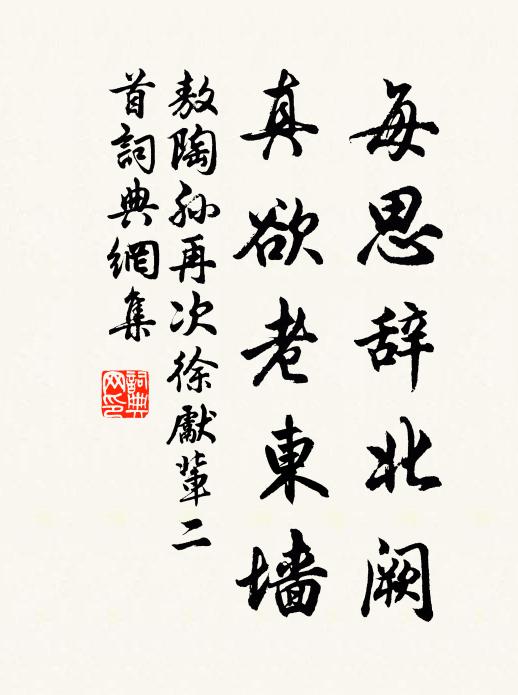 每思辞北阙
真欲老東墙
敖陶孙再次徐獻輩二
首詞典網集
詞典
网印